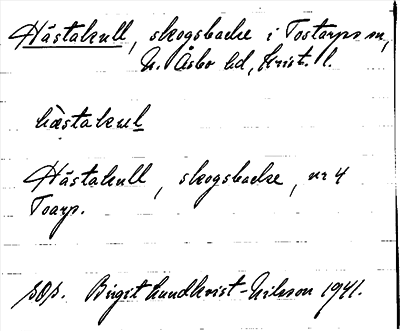 Hästakull, skogsbacke i Tostarps sn,
N. Åsbo hd, Krist. l.
hästakul
Hästakull, skogsbacke, nr 4
Toarp.
Birgit Lundkvist-Nilsson 1941.